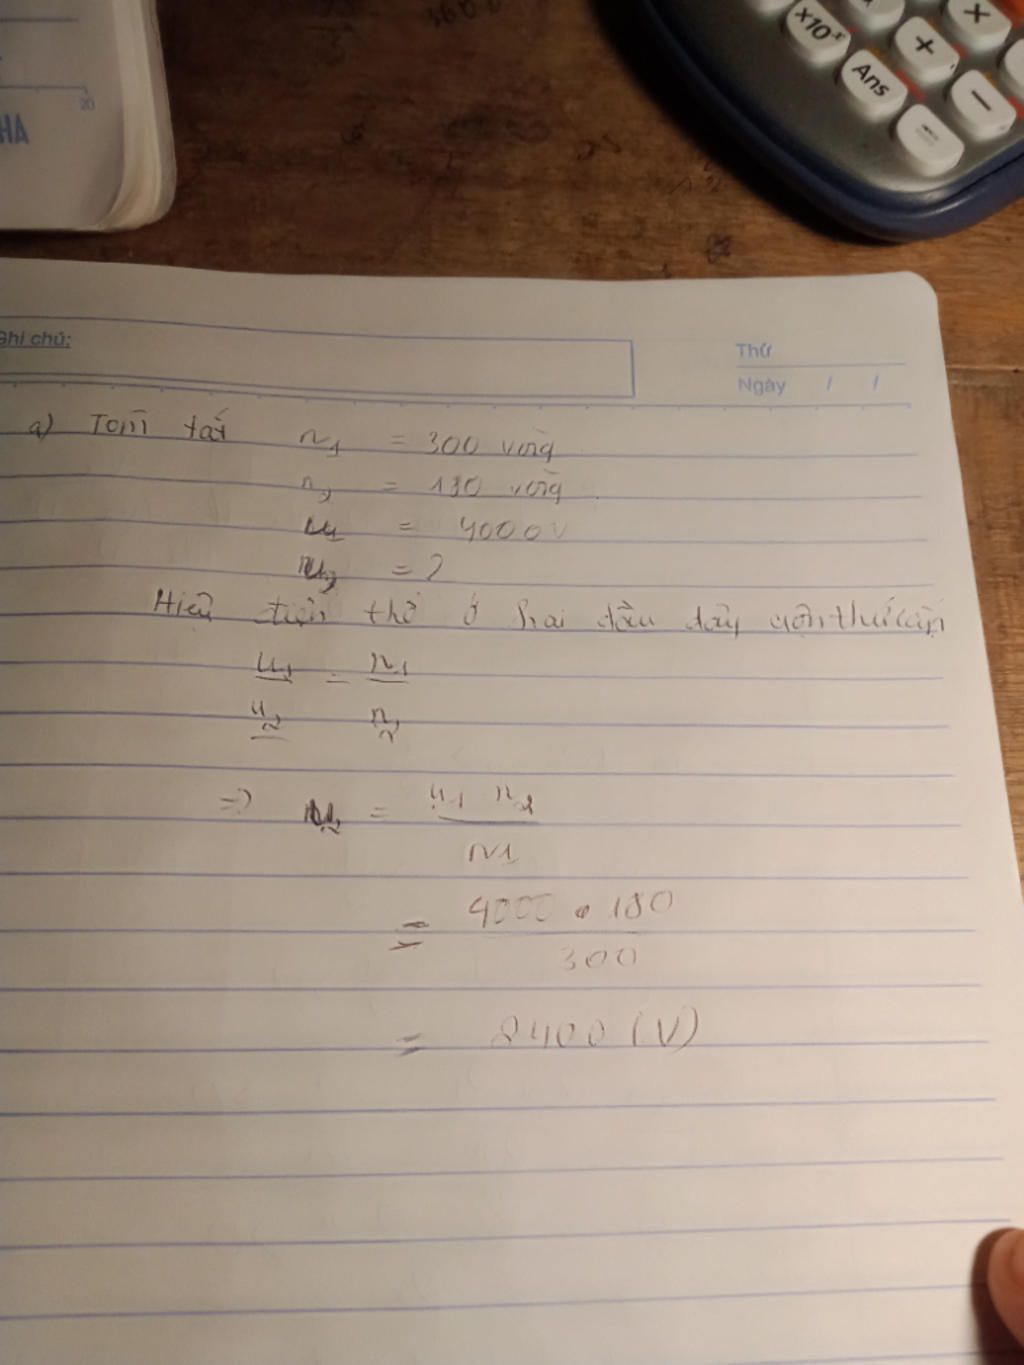 3600
HA
20
×10ˣ
Ans
+
×
−
=
Ghi chú:
Thứ
Ngày / /
a) Tóm tắt n₁ = 300 vòng
n₂ = 180 vòng
U₁ = 4000V
U₂ = ?
Hiệu điện thế ở hai đầu dây cuộn thứ cấp
u₁ = n₁
u₂ n₂
=> U₂ = u₁ n₂
n1
= 4000 . 180
300
= 2400 (V)